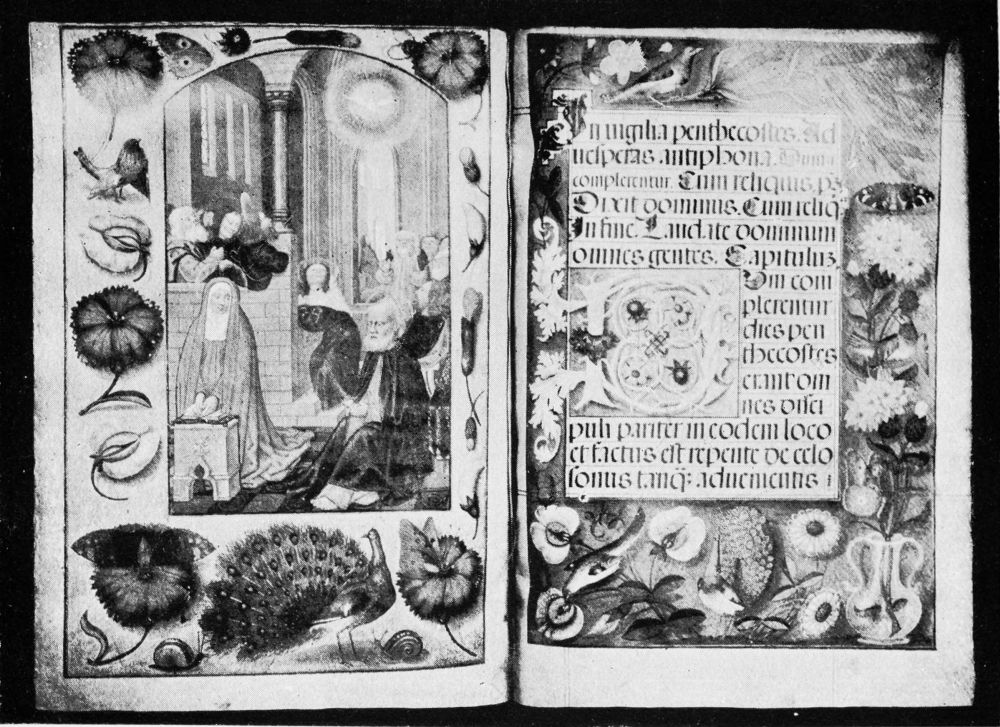 In uigilia penthecostes. Ad
uesperas antiphona. Dum
complerentur. Cum reliquis. ps̄
Dixit dominus. Cum reliq̄
in fine. Laudate dominum
omnes gentes. Capitulū.
Dum com
plerentur
dies pen
thecostes
erant om
nes disci
puli pariter in eodem loco
et factus est repente de celo
sonus tanq̄ꝫ aduenientis